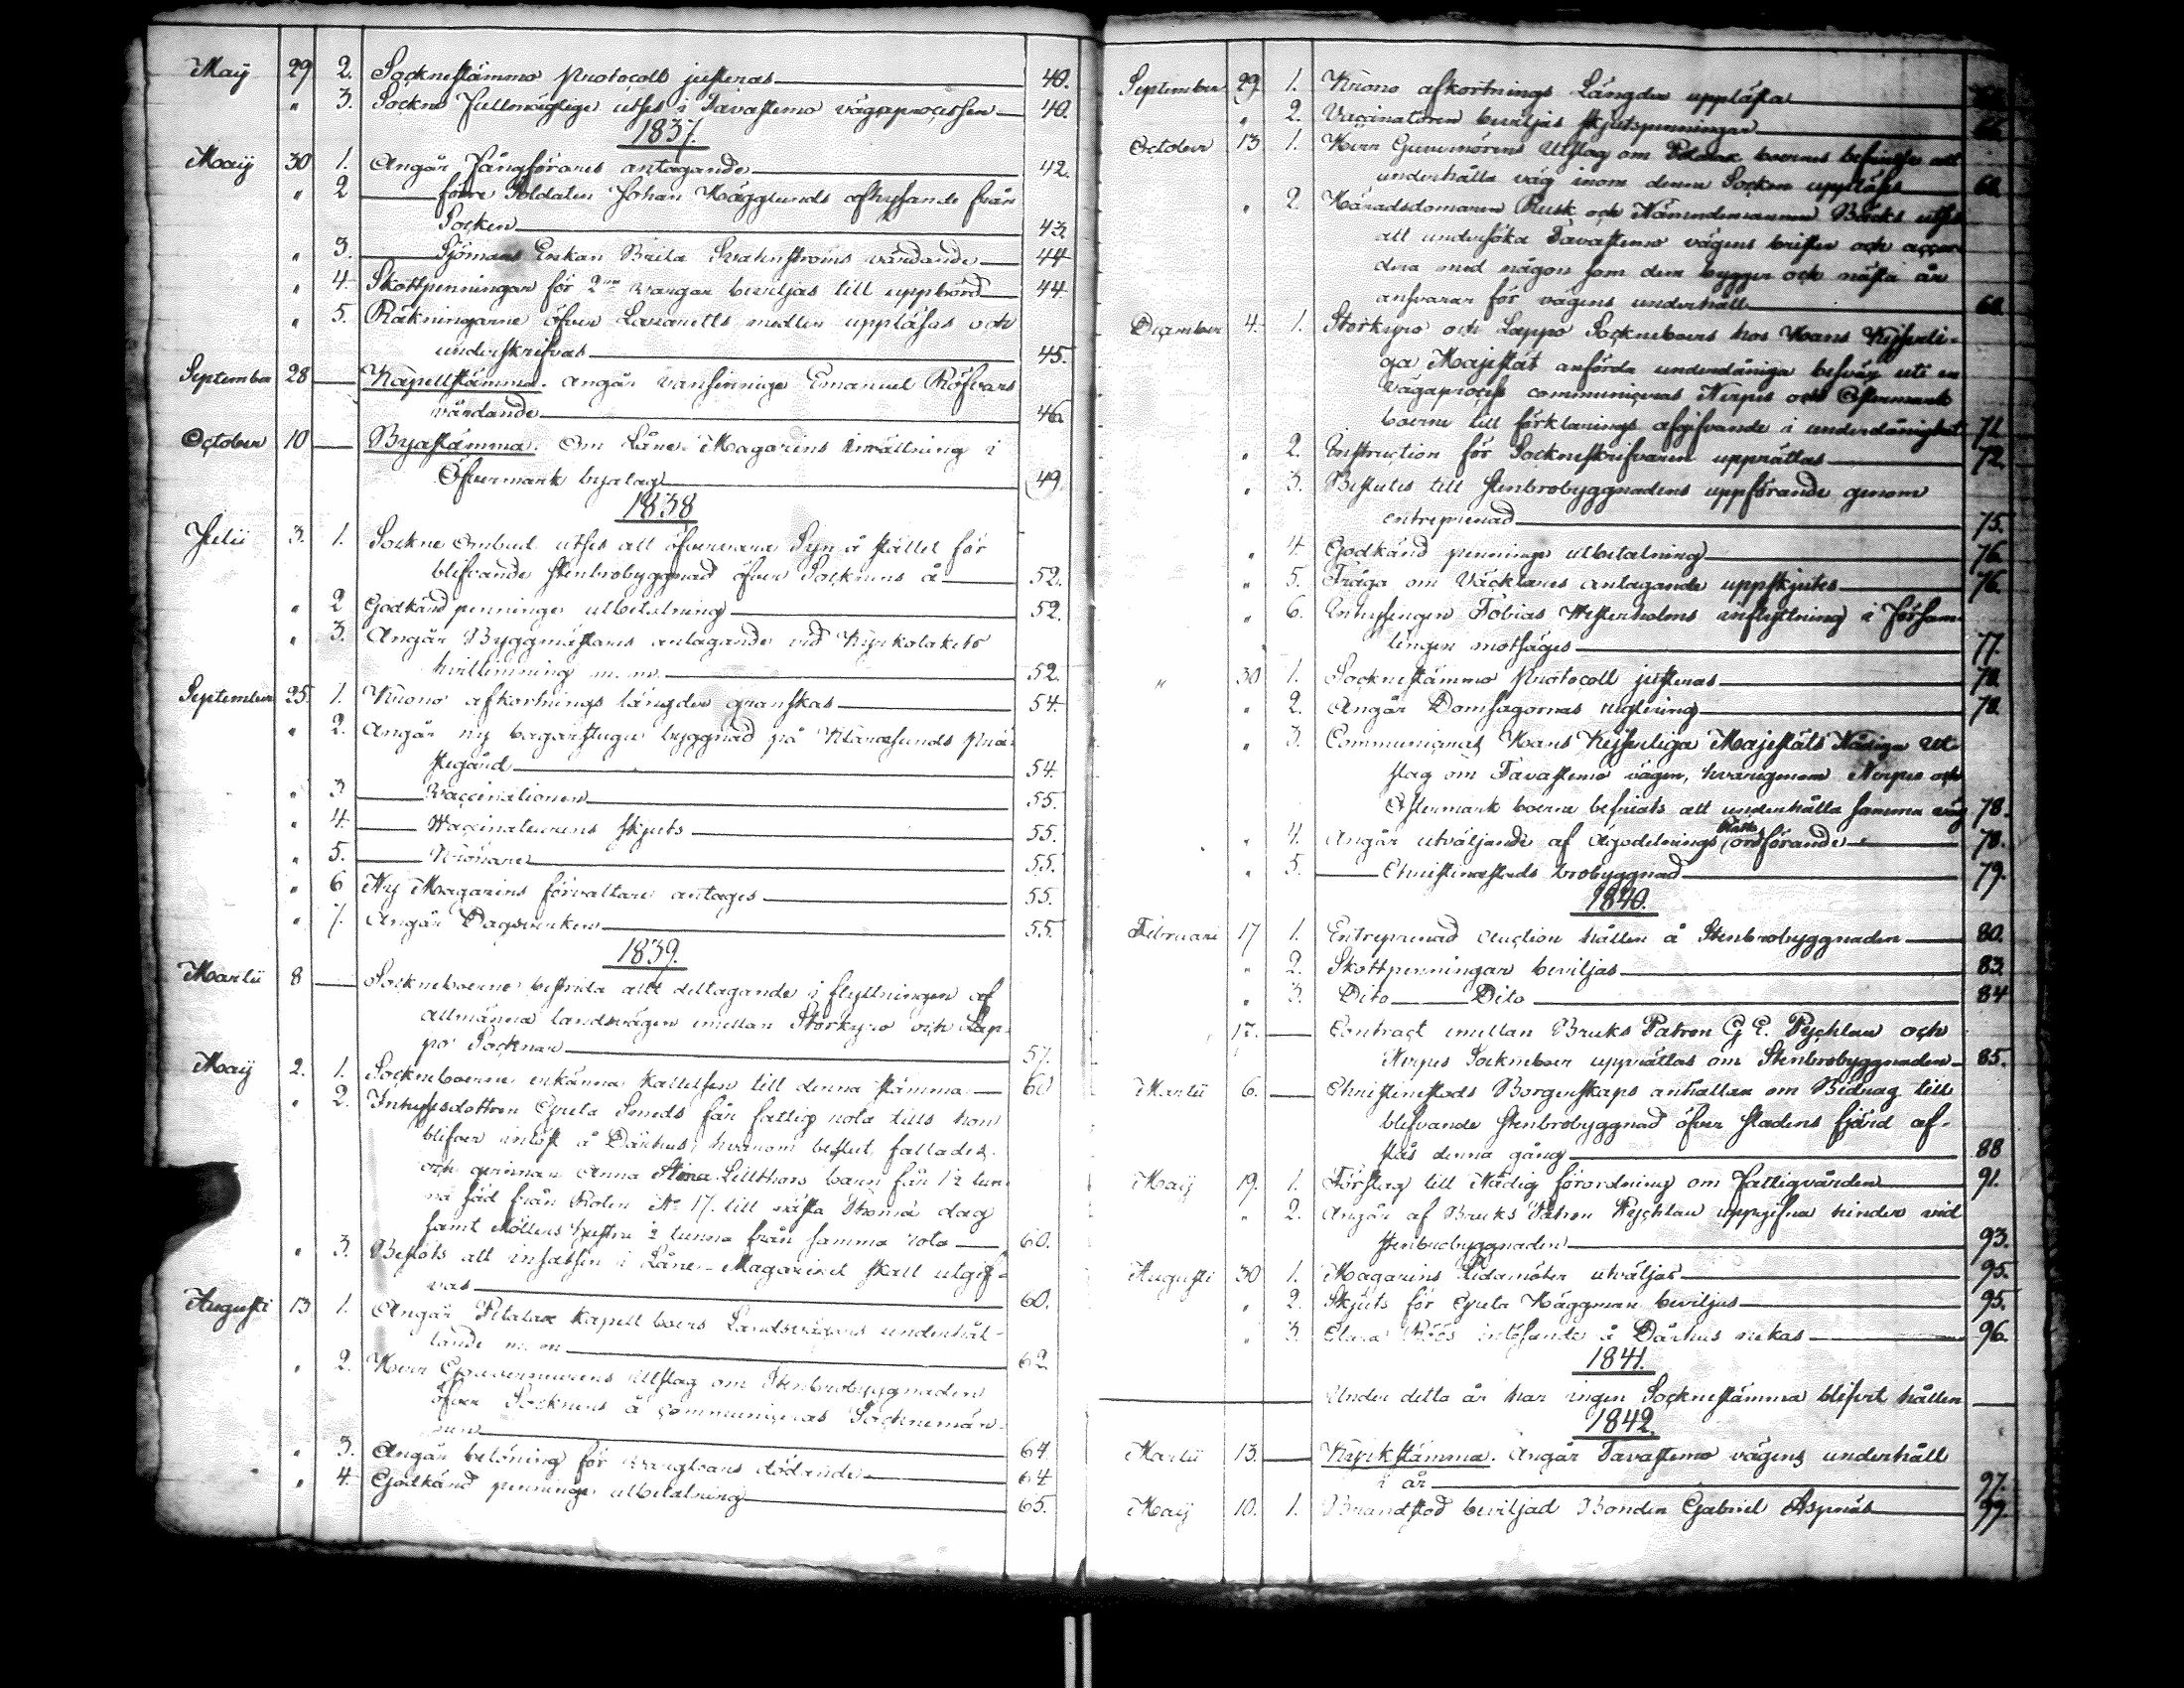 Maij 29 2. Socknestämmo Protocolls justeras 40.
" 3. Sockne Fullmägtige utses i Tavastemo vägaprocessen 40.
1837.
Maij 30 1. Angår Fångförares antagande 42.
" 2 förre Soldaten Johan Hägglunds afhysande från
Socken 43.
" 3. Sjömans Enkan Brita Svahnströms vårdande 44
" 4. Skottpenningar för 2ne vargar beviljas till uppbörd 44
" 5. Räkningarne öfver Lazaretts medlen uppläsas och
underskrifvas 45.
September 28 Kapellstämma. Angår vansinnige Emanuel Röfvars
vårdande 46.
October 10 Byastämma. Om Låne Magazins inrättning i
Öfvermark byalag 49.
1838
Julii 3. 1. Sockne Ombud utses att öfvervara Syn å stället för
blifvande stenbrobyggnad öfver Socknens å 52.
" 2 Godkänd penninge utbetalning 52.
" 3. Angår Byggmästares antagande vid Kyrkotakets
hvitlimning m. m. 52.
September 25. 1. Krono afkortnings längder granskas 54.
" 2. Angår ny bagarstugu byggnad på Klåresunds Prä-
stegård 54.
" 3 Vaccinationen 55.
" 4. Vaccinateurens skjuts 55.
" 5. Krönare 55.
" 6 Ny Magazins förvaltare antages 55.
" 7. Angår Dagsverken 55.
1839.
Martii 8 Sockneboerne bestrida allt deltagande i flyttningen af
allmänna landsvägen imellan Storkyro och Lap-
po Socknar 57.
Maij 2. 1. Sockneboerne erkänna kallelsen till denna stämma 60
" 2. Inhysesdottren Greta Smeds får fattig rota tills hon
blifver intöst å Dårhus, hvarom beslut fattades.
och qvinnan Anna Stina Lillthors barn får 1/2 tun-
na säd från Roten No 17. till nästa Thomæ dag
samt Möllers hustru 1/2 tunna från samma rota 60.
" 3. Beslöts att insatsen i Låne-Magazinet skall utgif-
vas 60.
Augusti 13 1. Angår Petalax Kapell boers Landsvägars underhål-
lande m. m 62.
" 2. Herr Gouverneurens Utslag om Stenbrobyggnaden
öfver Socknens å communiceras Socknemän-
nen 64
" 3. Angår belöning för varglons dödande 64
" 4. Godkänd penninge utbetalning 65.
September 29. 1. Krono afkortnings Längder uppläsas
" 2. Vaccinatören beviljas skjutspenningar
October 13 1. Herr Guvernörens Utslag om Petalax boernes befrielse att
underhålla väg inom denna Socken uppläses 68.
" 2. Häradsdomaren Rusk och Nämndemannen Bäcks utses
att undersöka Tavastemo vägens brister och accor-
dera med någon som den bygger och nästa år
ansvarar för vägens underhåll 68.
December 4. 1. Storkyro och Lappo Sockneboers hos Hans Kejserli-
ga Majestät anförda underdåniga besvär uti en
vägaprocess communiceras Nerpes och Östermark
boerne till förklarings afgifvande i underdånighet 71.
" 2. Instruction för Sockneskrifvaren upprättas 72.
" 3. Beslutes till stenbrobyggnadens uppförande genom
entreprenad 75.
" 4. Godkänd penninge utbetalning 76.
" 5. Fråga om Väcktares antagande uppskjutes 76.
" 6. Inhysingen Tobias Westerholms inflyttning i Försam-
lingen motsäges 77.
" 30 1. Socknestämmo Protocoll justeras 78.
" 2. Angår Domsagornas reglering 78.
" 3. Communiceras Hans Kejserliga Majestäts Nådiga Ut-
slag om Tavastemo vägen, hvarigenom Nerpes och
Östermark boerne befriats att underhålla samma väg 78.
" 4. Angår utväljande af Ägodelnings Rätts ordförande 78.
" 5. Christinestads brobyggnad 79.
1840.
Februari 17 1. Entreprenad Auction hållen å Stenbrobyggnaden 80.
" 2. Skottpenningar beviljas 83.
" 3. Dito Dito 84
" 17. Contract imellan Bruks Patron G. E. Pychlau och
Nerpes Socknebor upprättas om Stenbrobyggnaden 85.
Martii 6. Christinestads Borgerskaps anhållan om Bidrag till
blifvande stenbrobyggnad öfver stadens fjärd af-
slås denna gång 88
Maij 19. 1. Förslag till Nådig förordning om Fattigvården 91.
" 2. Angår af Bruks Patron Pychlau uppgifna hinder vid
stenbrobyggnaden 93.
Augusti 30 1. Magazins Ledamöter utväljas 95.
" 2. Skjuts för Greta Häggman beviljas 95.
" 3. Clara Röös intösande å Dårhus nekas 96.
1841.
Under detta år har ingen Sockneslämma blifvit hållen
1842.
Martii 13. Kyrkstämma. Angår Tavastemo vägens underhåll
i år 97.
Maij 10. 1. Brandstod beviljad Bonden Gabriel Aspnäs 99.